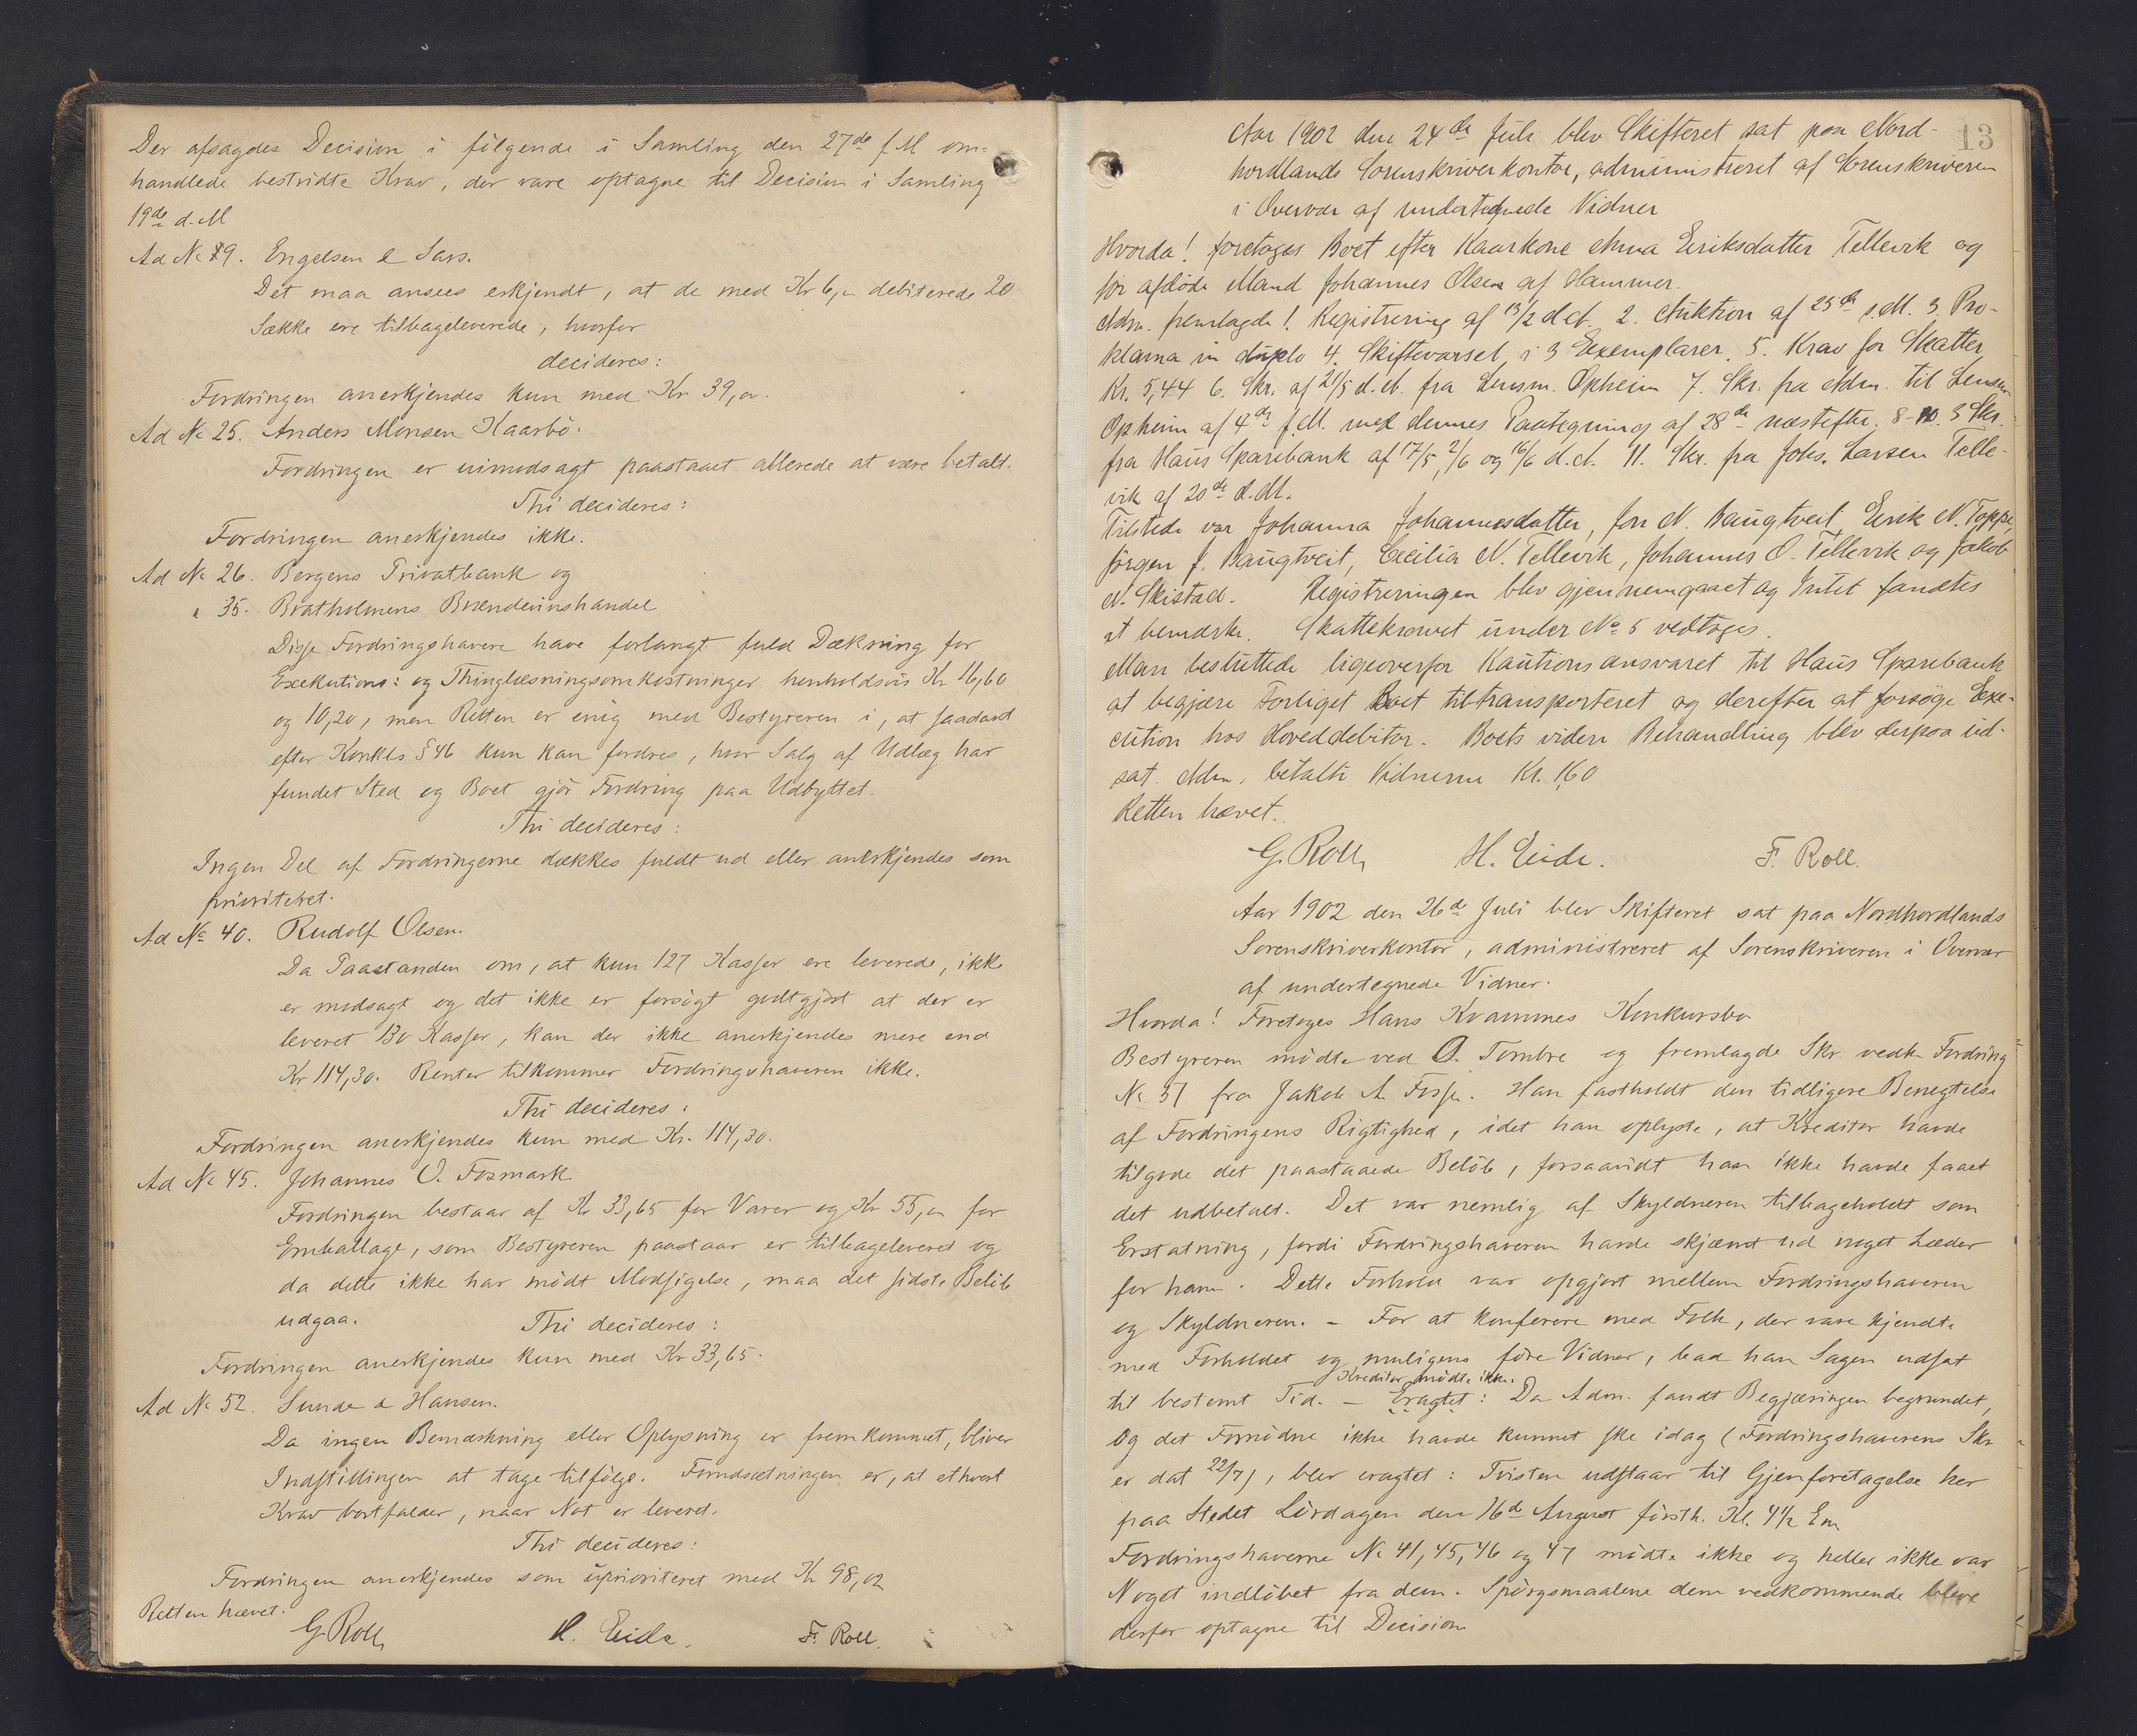 Der afsagdes Decision i følgende i Samling den 27de f M om=
handlede bestridte Krav, der vare optagne til Decision i Samling
19de d. M
Ad No 19. Engelsen & Sars.
Det maa ansees erkjendt, at de med Kr 6,„ debiterede 20
Sække ere tilbageleverede, hvorfor
decideres:
Fordringen anerkjendes kun med Kr 39,„.
Ad No 25. Anders Monsen Kaarbø.
Fordringen er uimodsagt paastaaet allerede at være betalt.
Thi decideres:
Fordringen anerkjendes ikke.
Ad No 26. Bergens Privatbank og
„ 35. Bratholmens Brændevinshandel
Disse Fordringshavere have forlangt fuld Dækning for
Exekutions: og Thinglæsningsomkostninger henholdsvis Kr 16,60
og 10,20, men Retten er enig med Bestyreren i, at saadant
efter Konkls § 46 kun kan fordres, hvor Salg af Udlæg har
fundet Sted og Boet gjør Fordring paa Udbyttet.
Thi decideres:
Ingen Del af Fordringerne dækkes fuldt ud eller anerkjendes som
prioriteret.
Ad No 40. Rudolf Olsen.
Da Paastanden om, at kun 127 Kasser ere leverede, ikke
er modsagt og det ikke er forsøgt godtgjort at der er
leveret 130 Kasser, kan der ikke anerkjendes mere end
Kr 114,30. Renter tilkommer Fordringshaveren ikke.
Thi decideres:
Fordringen anerkjendes kun med Kr. 114,30.
Ad No 45. Johannes O. Fosmark
Fordringen bestaar af Kr 33,65 for Varer og Kr 55,„ for
Emballage, som Bestyreren paastaar er tilbageleveret og
da dette ikke har mødt Modsigelse, maa det sidste Beløb
udgaa. Thi decideres:
Fordringen anerkjendes kun med Kr 33,65.
Ad No 52. Sunde & Hansen.
Da ingen Bemærkning eller Oplysning er fremkommet, bliver
Indstillingen at tage tilfølge. Forudsætningen er, at ethvert
Krav bortfalder, naar Not er leveret.
Thi decideres:
Fordringen anerkjendes som uprioriteret med Kr 98,02
Retten hævet.
G. Roll H. Eide. F. Roll.
13
Aar 1902 den 24de Juli blev Skifteret sat paa Nord-
hordlands Sorenskriverkontor, administreret af Sorenskriveren
i Overvær af undertegnede Vidner
Hvorda! foretoges Boet efter Kaarkone Anna Eiriksdatter Tellevik og
før afdøde Mand Johannes Olsen af Hammer.
Adm. fremlagde 1. Registrering af 13/2 d.A. 2. Auktion af 25de s.M. 3. Pro-
klama in duplo 4. Skiftevarsel i 3 Exemplarer. 5. Krav for Skatter
Kr. 5,44 6. Skr. af 21/5 d.A. fra Lensm. Opheim 7. Skr. fra Adm. til Lensm.
Opheim af 4de f.M. med dennes Paategning af 28de næstefter. 8-10. 3 Skr.
fra Haus Sparebank af 17/5, 2/6 og 16/6 d.A. 11. Skr. fra Johs. Larsen Telle-
vik af 20de d.M.
Tilstede var Johanna Johannesdatter, Jon N. Haugtveit, Eirik N. Toppe,
Jørgen J. Haugtveit, Cecilia N. Tellevik, Johannes O. Tellevik og Jakob
N. Skistad. Registreringen blev gjennemgaaet og Intet fandtes
at bemærke. Skattekravet under No 5 vedtoges.
Man besluttede ligeoverfor Kautionsansvaret til Haus Sparebank
at begjære Forliget Boet tiltransporteret og derefter at forsøge Exe-
cution hos Hoveddebitor. Boets videre Behandling blev derpaa ud-
sat. Adm. betalte Vidnerne Kr. 1,60
Retten hævet.
G. Roll H. Eide. F. Roll.
Aar 1902 den 26de Juli blev Skifteret sat paa Nordhordlands
Sorenskriverkontor, administreret af Sorenskriveren i Overvær
af undertegnede Vidner.
Hvorda! Foretoges Hans Kvammes Konkursbo
Bestyreren mødte ved O. Tombre og fremlagde Skr. vedk. Fordring
No 51 fra Jakob A Fosse. Han fastholdt den tidligere Benegtelse
af Fordringens Rigtighed, idet han oplyste, at Kreditor havde
tilgode det paastaaede Beløb, forsaavidt han ikke havde faaet
det udbetalt. Det var nemlig af Skyldneren tilbageholdt som
Erstatning, fordi Fordringshaveren havde skjæmt ud noget Læder
for ham. Dette Forhold var opgjort mellem Fordringshaveren
og Skyldneren. – For at konferere med Folk, der vare kjendte
med Forholdet og muligens føre Vidner, bad han Sagen udsat
Kreditor mødte ikke.
til bestemt Tid. – Eragtet: Da Adm. fandt Begjæringen begrundet,
og det Fornødne ikke havde kunnet ske idag (Fordringshaverens Skr
er dat 22/7), blev eragtet: Tvisten udstaar til Gjenforetagelse her
paa Stedet Lørdagen den 16de August førstk. Kl. 4 1/2 Em.
Fordringshaverne No 41, 45, 46 og 47 mødte ikke og heller ikke var
Noget indløbet fra dem. Spørgsmaalene dem vedkommende bleve
derfor optagne til Decision